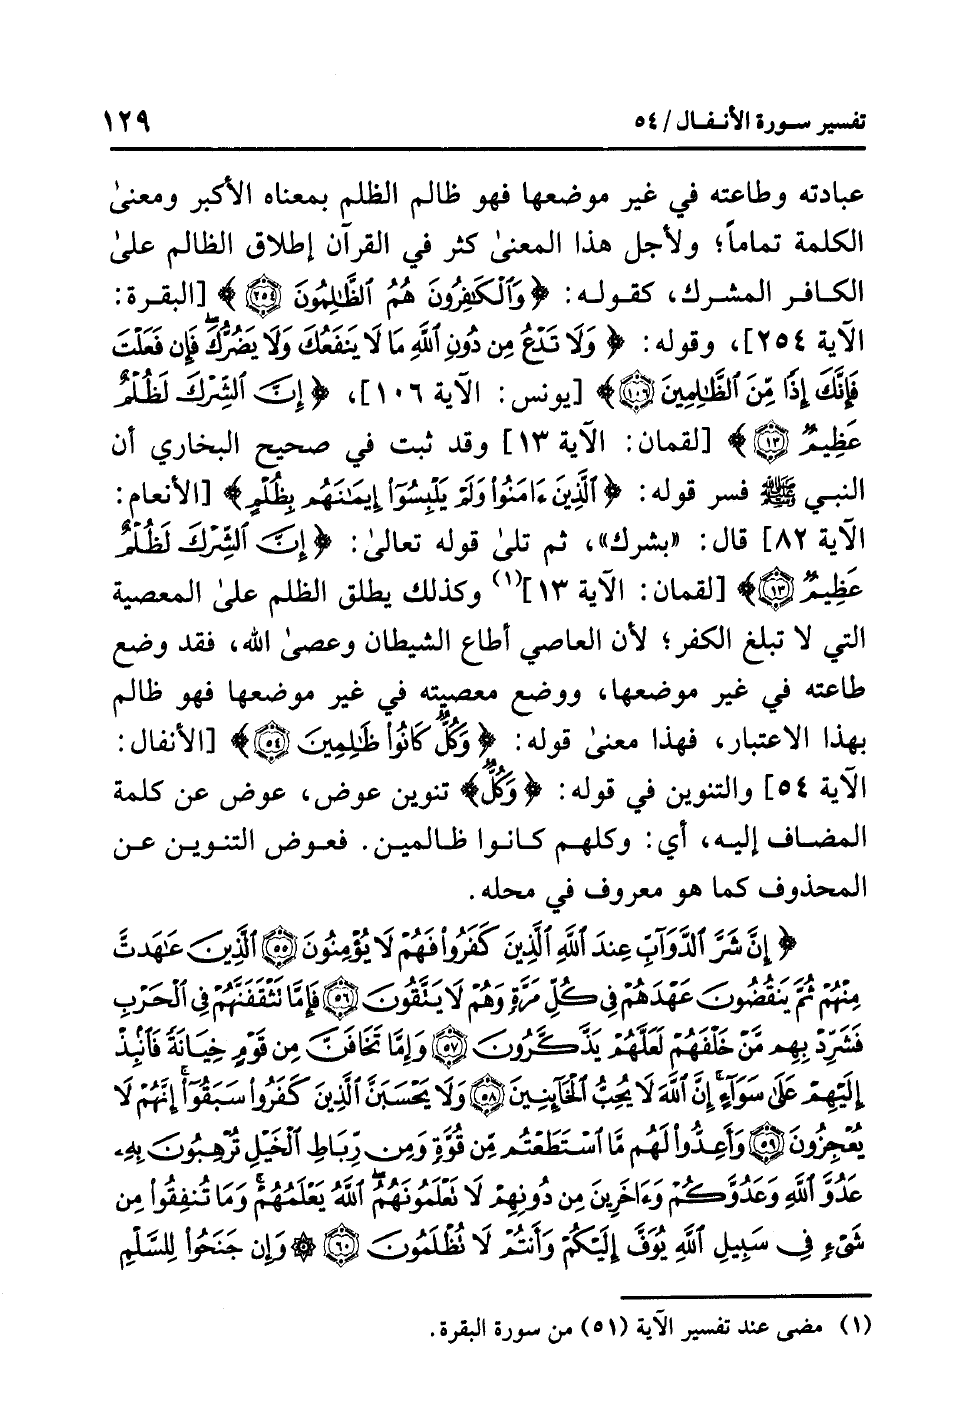 تفسير سورة الأنفال / ٥٤ ١٢٩
عبادته وطاعته في غير موضعها فهو ظالم الظلم بمعناه الأكبر ومعنىٰ
الكلمة تماماً؛ ولأجل هذا المعنىٰ كثر في القرآن إطلاق الظالم علىٰ
الكافر المشرك، كقوله: ﴿وَٱلْكَٰفِرُونَ هُمُ ٱلظَّٰلِمُونَ ٢٥٤﴾ [البقرة:
الآية ٢٥٤]، وقوله: ﴿وَلَا تَدْعُ مِن دُونِ ٱللَّهِ مَا لَا يَنفَعُكَ وَلَا يَضُرُّكَۖ فَإِن فَعَلْتَ
فَإِنَّكَ إِذًا مِّنَ ٱلظَّٰلِمِينَ ١٠٦﴾ [يونس: الآية ١٠٦]، ﴿إِنَّ ٱلشِّرْكَ لَظُلْمٌ
عَظِيمٌ ١٣﴾ [لقمان: الآية ١٣] وقد ثبت في صحيح البخاري أن
النبي ﷺ فسر قوله: ﴿ٱلَّذِينَ ءَامَنُوا۟ وَلَمْ يَلْبِسُوٓا۟ إِيمَٰنَهُم بِظُلْمٍ﴾ [الأنعام:
الآية ٨٢] قال: «بشرك»، ثم تلىٰ قوله تعالىٰ: ﴿إِنَّ ٱلشِّرْكَ لَظُلْمٌ
عَظِيمٌ ١٣﴾ [لقمان: الآية ١٣](١) وكذلك يطلق الظلم علىٰ المعصية
التي لا تبلغ الكفر؛ لأن العاصي أطاع الشيطان وعصىٰ الله، فقد وضع
طاعته في غير موضعها، ووضع معصيته في غير موضعها فهو ظالم
بهذا الاعتبار، فهذا معنىٰ قوله: ﴿وَكُلٌّ كَانُوا۟ ظَٰلِمِينَ ٥٤﴾ [الأنفال:
الآية ٥٤] والتنوين في قوله: ﴿وَكُلٌّ﴾ تنوين عوض، عوض عن كلمة
المضاف إليه، أي: وكلهم كانوا ظالمين. فعوض التنوين عن
المحذوف كما هو معروف في محله.
﴿إِنَّ شَرَّ ٱلدَّوَآبِّ عِندَ ٱللَّهِ ٱلَّذِينَ كَفَرُوا۟ فَهُمْ لَا يُؤْمِنُونَ ٥٥ ٱلَّذِينَ عَٰهَدتَّ
مِنْهُمْ ثُمَّ يَنقُضُونَ عَهْدَهُمْ فِى كُلِّ مَرَّةٍ وَهُمْ لَا يَتَّقُونَ ٥٦ فَإِمَّا تَثْقَفَنَّهُمْ فِى ٱلْحَرْبِ
فَشَرِّدْ بِهِم مَّنْ خَلْفَهُمْ لَعَلَّهُمْ يَذَّكَّرُونَ ٥٧ وَإِمَّا تَخَافَنَّ مِن قَوْمٍ خِيَانَةً فَٱنۢبِذْ
إِلَيْهِمْ عَلَىٰ سَوَآءٍۚ إِنَّ ٱللَّهَ لَا يُحِبُّ ٱلْخَآئِنِينَ ٥٨ وَلَا يَحْسَبَنَّ ٱلَّذِينَ كَفَرُوا۟ سَبَقُوٓا۟ۚ إِنَّهُمْ لَا
يُعْجِزُونَ ٥٩ وَأَعِدُّوا۟ لَهُم مَّا ٱسْتَطَعْتُم مِّن قُوَّةٍ وَمِن رِّبَاطِ ٱلْخَيْلِ تُرْهِبُونَ بِهِۦ
عَدُوَّ ٱللَّهِ وَعَدُوَّكُمْ وَءَاخَرِينَ مِن دُونِهِمْ لَا تَعْلَمُونَهُمُ ٱللَّهُ يَعْلَمُهُمْۚ وَمَا تُنفِقُوا۟ مِن
شَىْءٍ فِى سَبِيلِ ٱللَّهِ يُوَفَّ إِلَيْكُمْ وَأَنتُمْ لَا تُظْلَمُونَ ٦٠ ۞ وَإِن جَنَحُوا۟ لِلسَّلْمِ
(١) مضى عند تفسير الآية (٥١) من سورة البقرة.